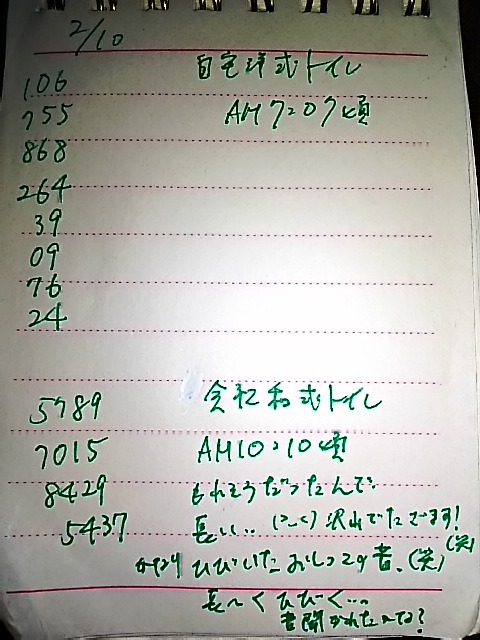 2/10
106 自宅洋式トイレ
755 AM7:07頃
868
264
39
09
76
24
5789 会社和式トイレ
7015 AM10:10頃
8429 もれそうだったんで
5437 長い.. 沢山でたでます!
ひびいたおしっこの音、(笑)(笑)
長〜くひびく…。
音聞かれたんでは?